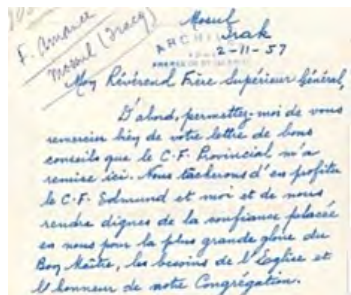 Mosul
Irak
F. Amance
Mosul (Iracq)
ARCHI
2-11-57
Mon Révérend Frère Supérieur Général,
D'abord, permettez-moi de vous
remercier bien de votre lettre de bons
conseils que le C. F. Provincial m'a
remise ici. Nous tâcherons d'en profiter
le C. F. Edmund et moi et de nous
rendre dignes de la confiance placée
en nous pour la plus grande gloire du
Bon Maître, les besoins de l'Eglise et
l'honneur de notre Congrégation.